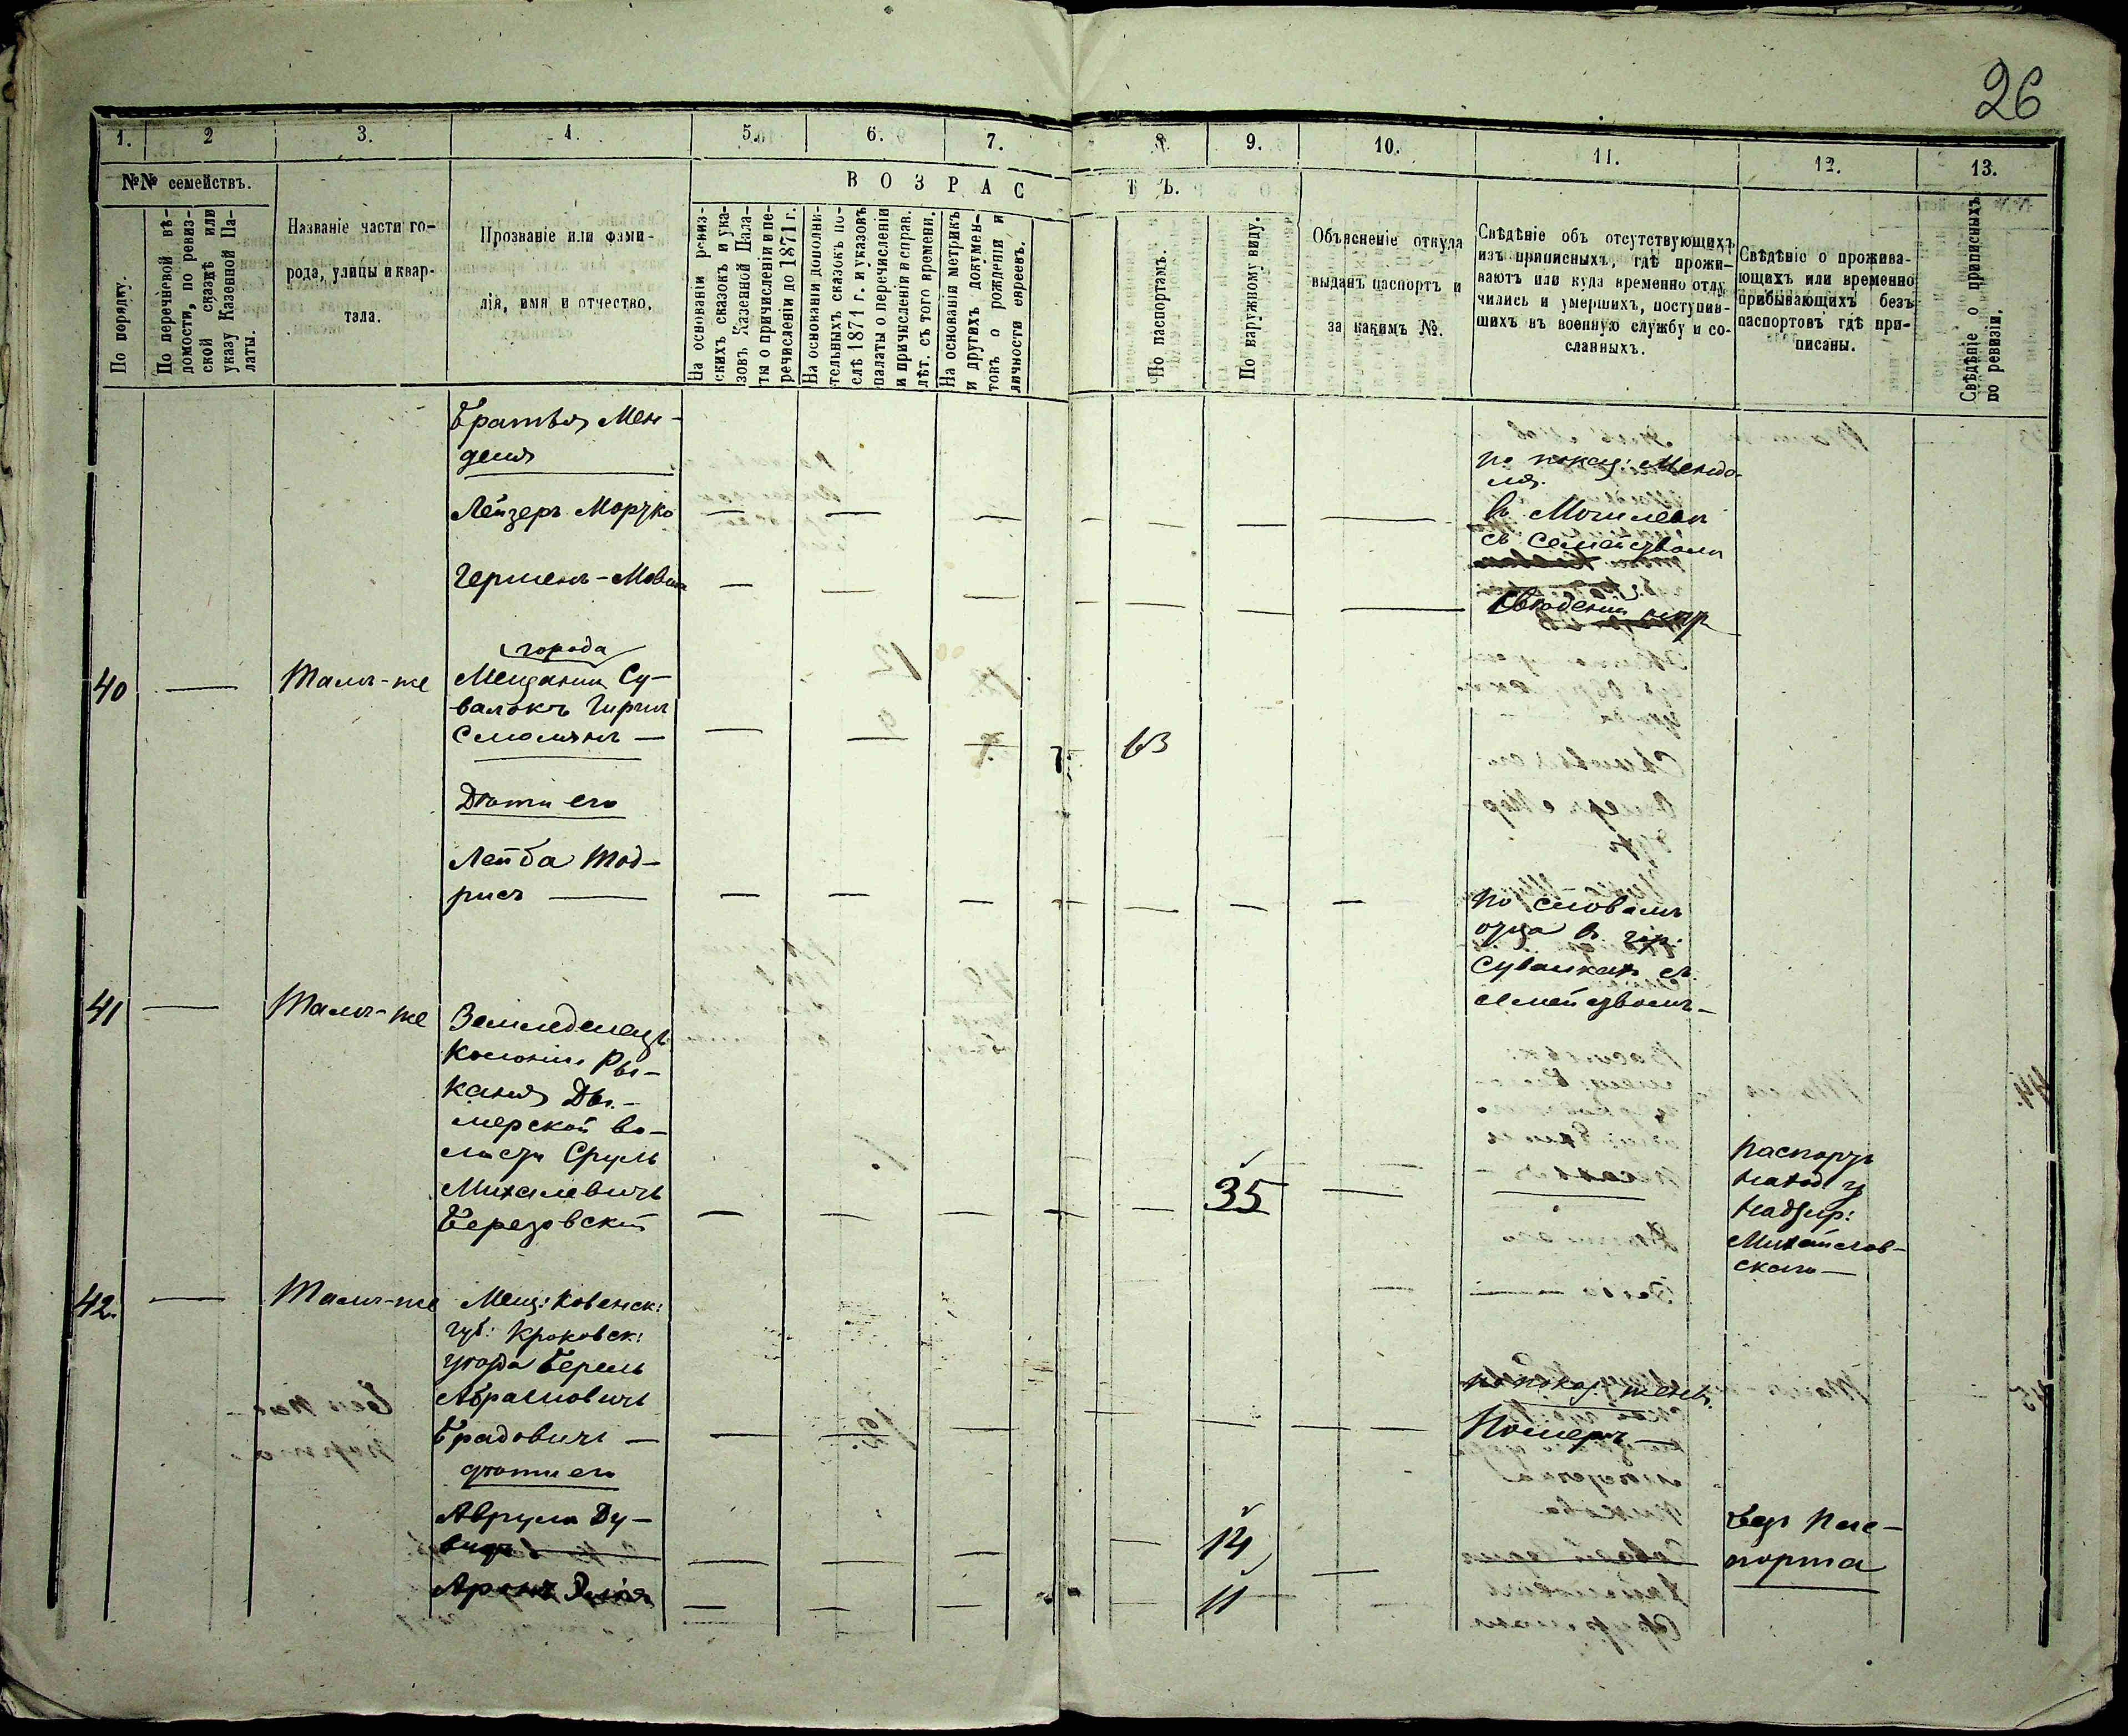 26
1. 2 3. 4. 5. 6. 7. 8. 9. 10. 11. 12. 13.
№№ семействъ.
По порядку.
По перечневой вѣ-
домости, по ревиз-
ской сказкѣ или
указу Казенной Па-
латы.
Названіе части го-
рода, улицы и квар-
тала.
Прозваніе или фами-
лія, имя и отчество.
ВОЗРАСТЪ.
На основаніи ревиз-
скихъ сказокъ и ука-
зовъ Казенной Пала-
ты о причисленіи и пе-
речисленіи до 1871 г.
На основаніи дополни-
тельныхъ сказокъ по-
слѣ 1871 г. и указовъ
палаты о перечисленіи
и причисленіи и справ.
лѣт. съ того времени.
На основаніи метрикъ
и другихъ докумен-
товъ о рожденіи и
личности евреевъ.
По паспортамъ.
По наружному виду.
Объясненіе откуда
выданъ паспортъ и
за какимъ №.
Свѣдѣніе объ отсутствующихъ
изъ приписныхъ, гдѣ прожи-
ваютъ или куда временно отлу-
чились и умершихъ, поступив-
шихъ въ военную службу и со-
сланныхъ.
Свѣдѣніе о прожива-
ющихъ или временно
прибывающихъ безъ
паспортовъ гдѣ при-
писаны.
Свѣдѣніе о приписныхъ
по ревизіи.
Братья Мен-
деля
по показ: Менде-
ля.
Лейзеръ Мордко — — — — — — —
въ Могилевѣ
съ семействомъ
Гершенъ-Мовша — — — — — — —
40 — Тамъ-же
города
Мещанинъ Су-
валокъ Гиршъ
Смолянъ — — — 63
Дѣти его
Лейба Тод-
рисъ — — — — — — —
по словамъ
отца въ гор:
Сувалкахъ съ
семействомъ —
41 — Тамъ-же
Земледелецъ
колоніи Ры-
каня Ды-
мерской во-
лости Сруль
Михелевичъ
Березовскій — — — — 35 — —
Паспортъ
наход. у
надзир:
Михайлов-
скаго —
42. — Тамъ-же
Мещ: Ковенск:
губ: Кроковск:
уѣзда Берель
Абрамовичъ
Брадовичъ — — — — — — —
по показ: жены
Померъ —
дѣти его
Аврумъ Ду-
видъ — — — — — 14 —
Безъ Пас-
порта
Аронъ Эліа — — — — 11 —